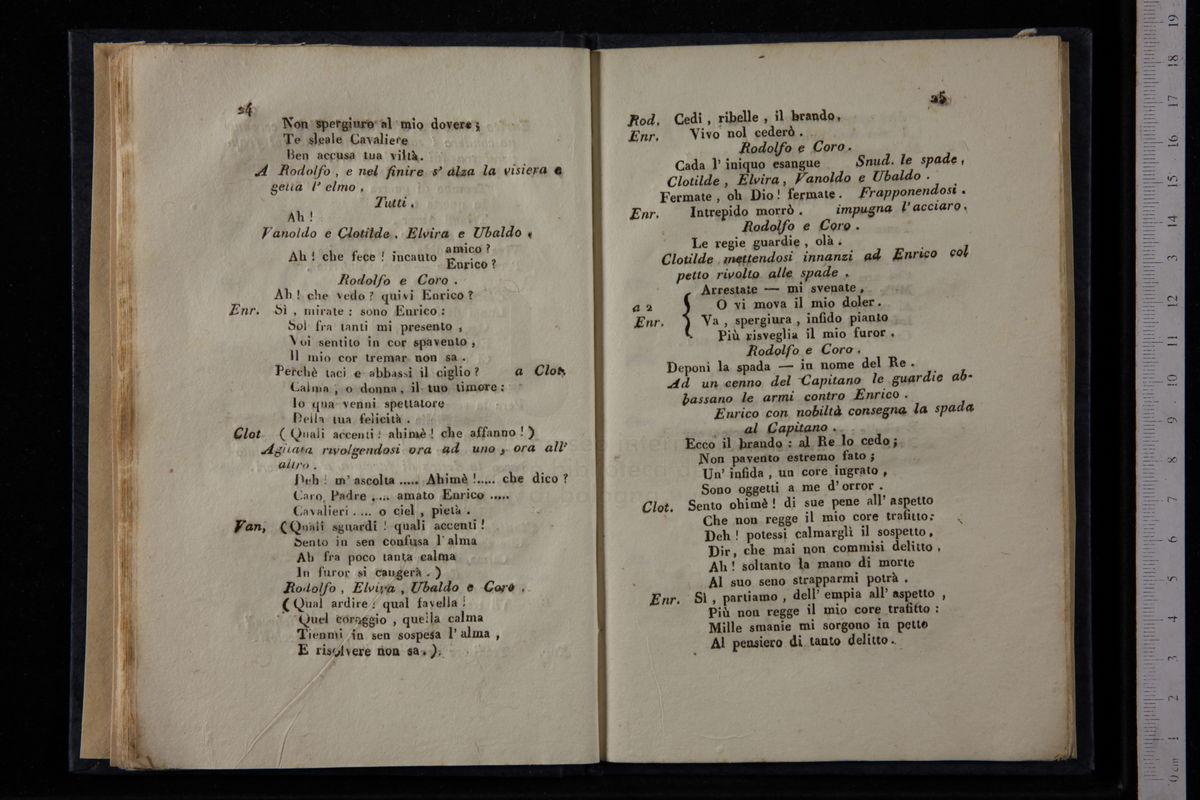 24
Non spergiuro al mio dovere;
Te sleale Cavaliere
Ben accusa tua viltà.
A Rodolfo, e nel finire s' alza la visiera e
getta l' elmo.
Tutti.
Ah!
Vanoldo e Clotilde. Elvira e Ubaldo.
amico?
Ah! che fece! incauto
Enrico?
Rodolfo e Coro.
Ah! che vedo? quivi Enrico?
Enr. Sì, mirate: sono Enrico:
Sol fra tanti mi presento,
Voi sentito in cor spavento,
Il mio cor tremar non sa.
Perchè taci e abbassi il ciglio? a Clot.
Calma, o donna, il tuo timore:
Io qua venni spettatore
Della tua felicità.
Clot (Quali accenti! ahimè! che affanno!)
Agitata rivolgendosi ora ad uno, ora all'
altro.
Deh! m' ascolta ..... Ahimè!..... che dico?
Caro Padre .... amato Enrico .....
Cavalieri .... o ciel, pietà.
Van, (Quali sguardi! quali accenti!
Sento in sen confusa l' alma
Ah fra poco tanta calma
In furor si cangerà.)
Rodolfo, Elvira, Ubaldo e Coro.
(Qual ardire! qual favella!
Quel coraggio, quella calma
Tienmi in sen sospesa l' alma,
E risolvere non sa.)
25
Rod. Cedi, ribelle, il brando.
Enr. Vivo nol cederò.
Rodolfo e Coro.
Cada l' iniquo esangue Snud. le spade,
Clotilde, Elvira, Vanoldo e Ubaldo.
Fermate, oh Dio! fermate. Frapponendosi.
Enr. Intrepido morrò. impugna l' acciaro.
Rodolfo e Coro.
Le regie guardie, olà.
Clotilde mettendosi innanzi ad Enrico col
petto rivolto alle spade.
Arrestate — mi svenate,
a 2 { O vi mova il mio doler.
Enr. Va, spergiura, infido pianto
Più risveglia il mio furor.
Rodolfo e Coro.
Deponi la spada — in nome del Re.
Ad un cenno del Capitano le guardie ab-
bassano le armi contro Enrico.
Enrico con nobiltà consegna la spada
al Capitano.
Ecco il brando: al Re lo cedo;
Non pavento estremo fato;
Un' infida, un core ingrato,
Sono oggetti a me d' orror.
Clot. Sento ohimè! di sue pene all' aspetto
Che non regge il mio core trafitto:
Deh! potessi calmargli il sospetto,
Dir, che mai non commisi delitto,
Ah! soltanto la mano di morte
Al suo seno strapparmi potrà.
Enr. Sì, partiamo, dell' empia all' aspetto,
Più non regge il mio core trafitto:
Mille smanie mi sorgono in petto
Al pensiero di tanto delitto.